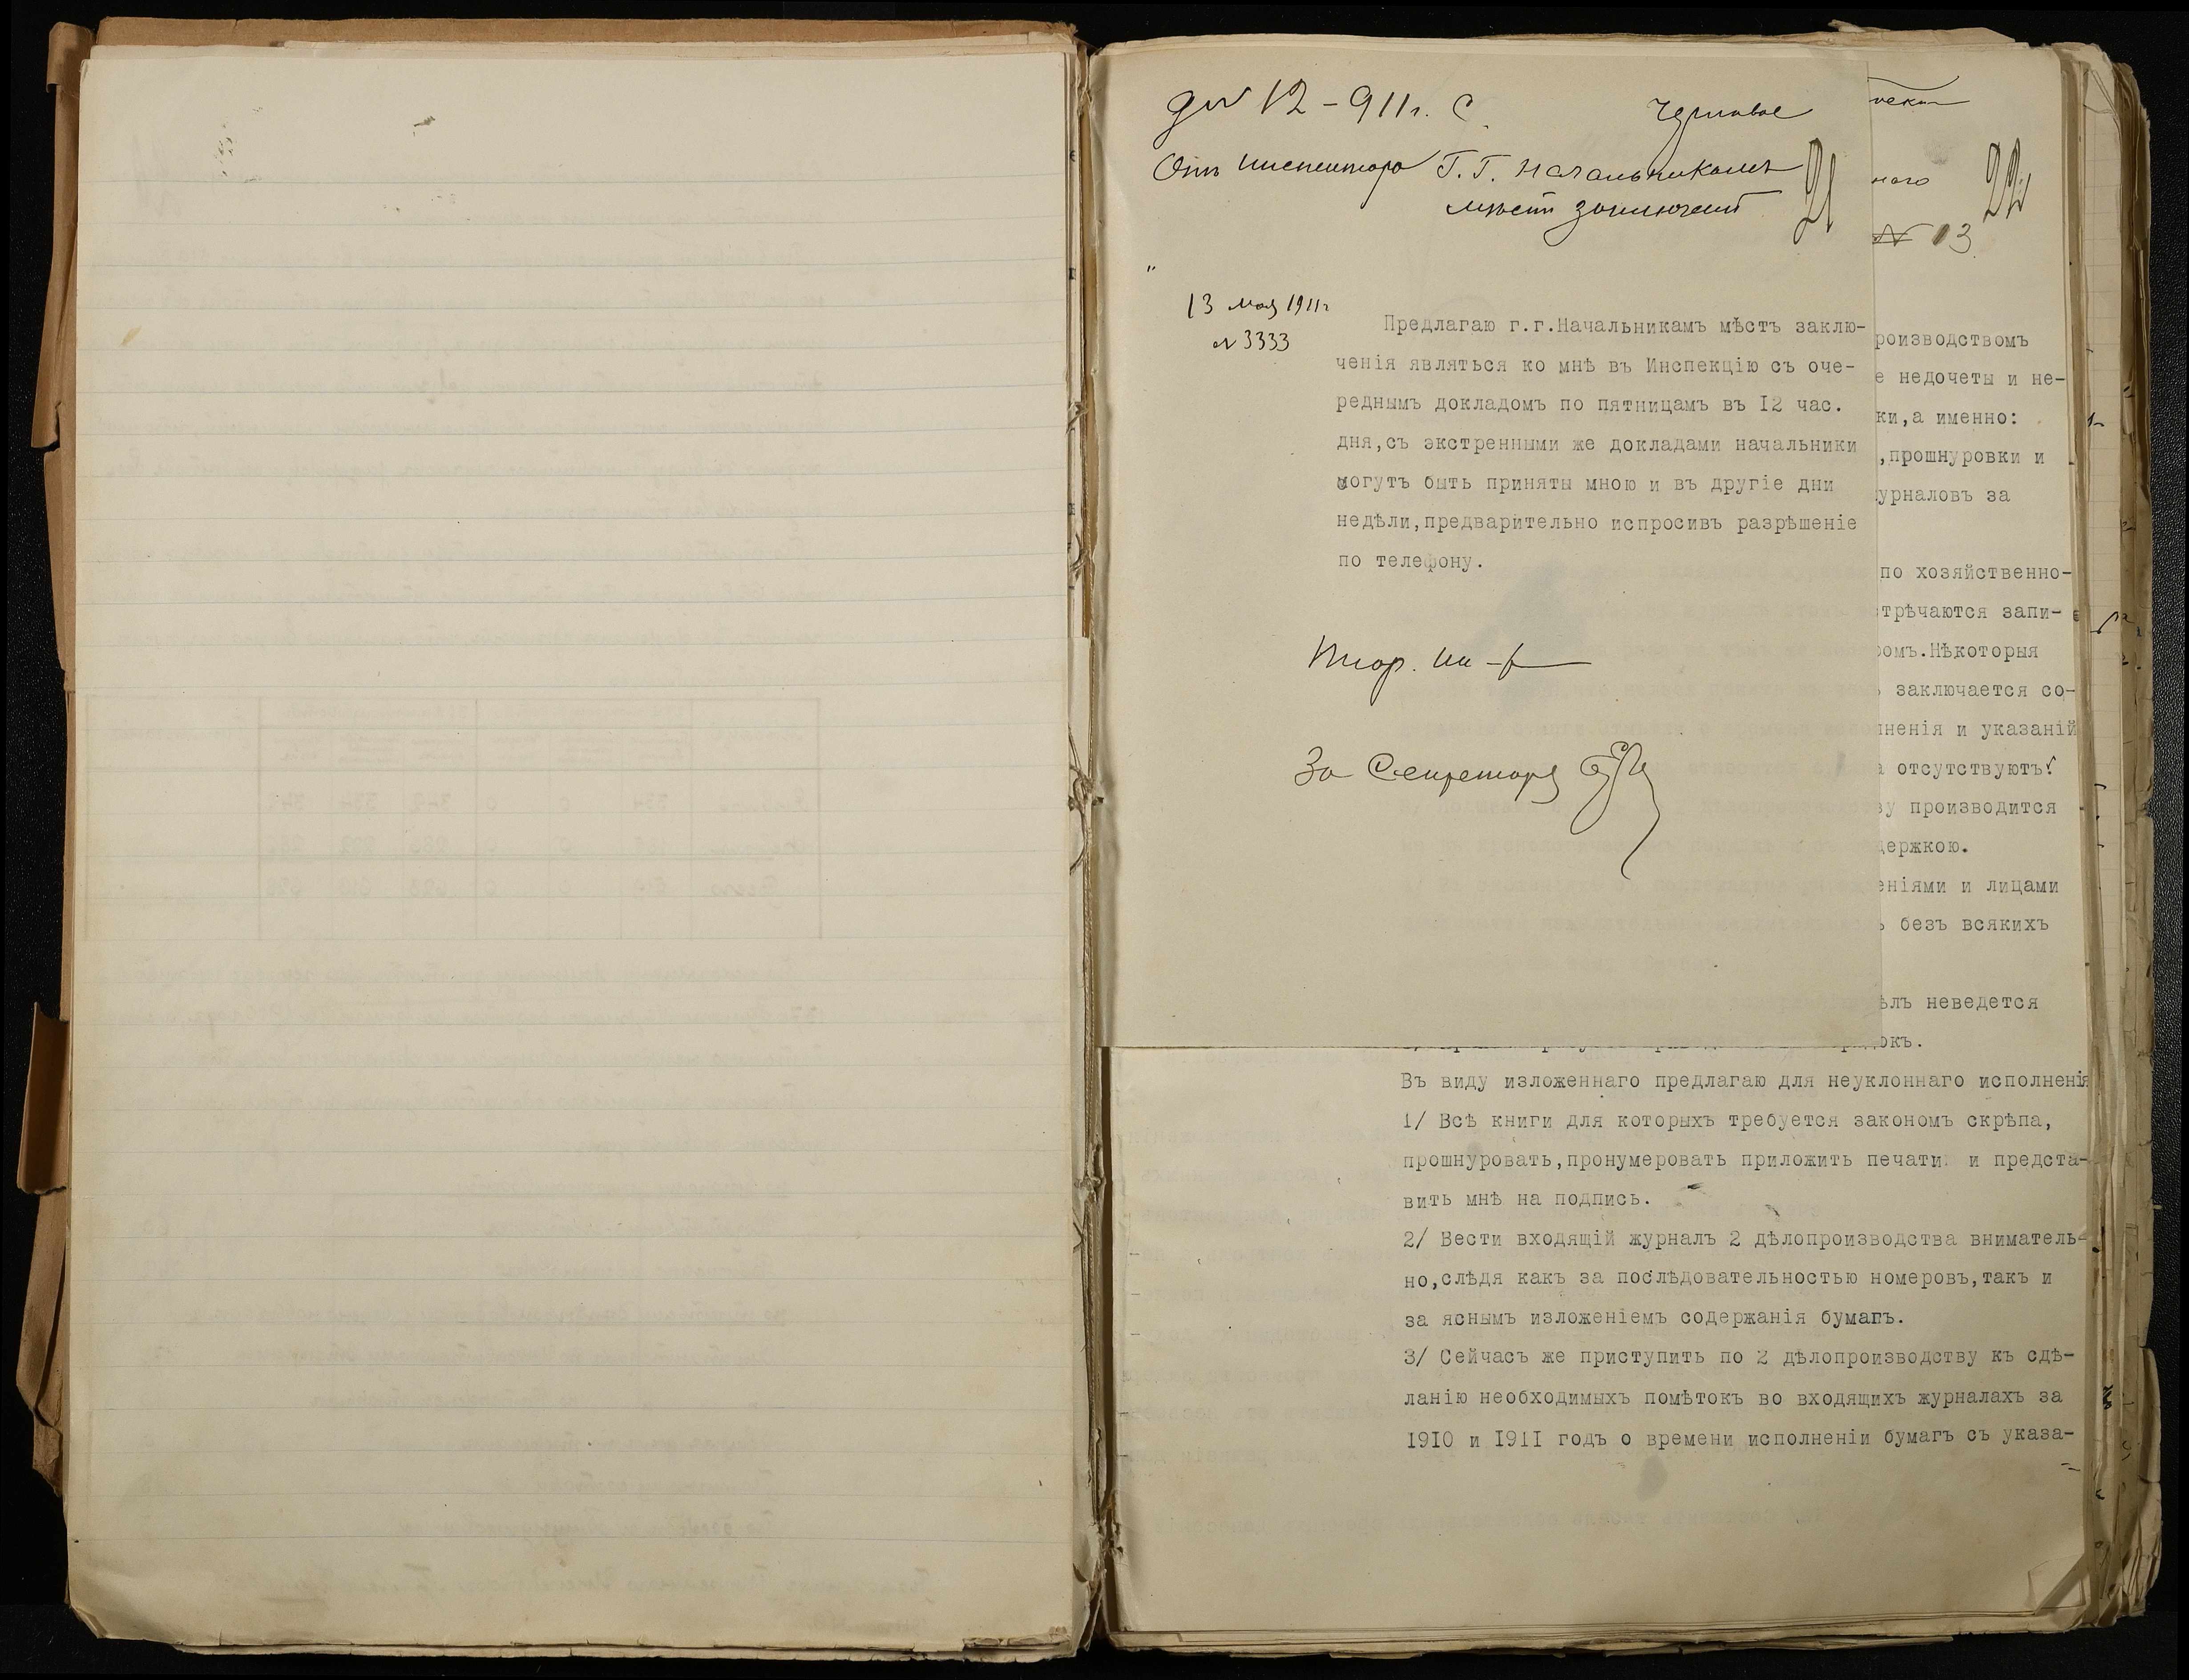 12 – 911 г. С.
Черновое
Отъ Инспектора Г.Г. Начальникамъ
мѣстъ заключенія
21
13 мая 1911 г
№ 3333
Предлагаю г.г.Начальникамъ мѣстъ заклю-
ченія являться ко мнѣ въ Инспекцію съ оче-
реднымъ докладомъ по пятницамъ въ I2 час.
дня,съ экстренными же докладами начальники
могутъ быть приняты мною и въ другіе дни
недѣли,предварительно испросивъ разрѣшеніе
по телефону.
За Секретаря
22
№ 13
роизводствомъ
е недочеты и не-
ки,а именно:
,прошнуровки и
урналовъ за
по хозяйственно-
трѣчаются запи-
ромъ.Нѣкоторыя
заключается со-
ненія и указаній
отсутствуютъ.
ву производится
держкою.
еніями и лицами
безъ всякихъ
ѣлъ неведется
докъ.
Въ виду изложеннаго предлагаю для неуклоннаго исполненія
1/ Всѣ книги для которыхъ требуется закономъ скрѣпа,
прошнуровать,пронумеровать приложить печати и предста-
вить мнѣ на подпись.
2/ Вести входящій журналъ 2 дѣлопроизводства вниматель-
но,слѣдя какъ за послѣдовательностью номеровъ,такъ и
за яснымъ изложеніемъ содержанія бумагъ.
3/ Сейчасъ же приступить по 2 дѣлопроизводству къ сдѣ-
ланію необходимыхъ помѣтокъ во входящихъ журналахъ за
1910 и I9II годъ о времени исполненіи бумагъ съ указа-